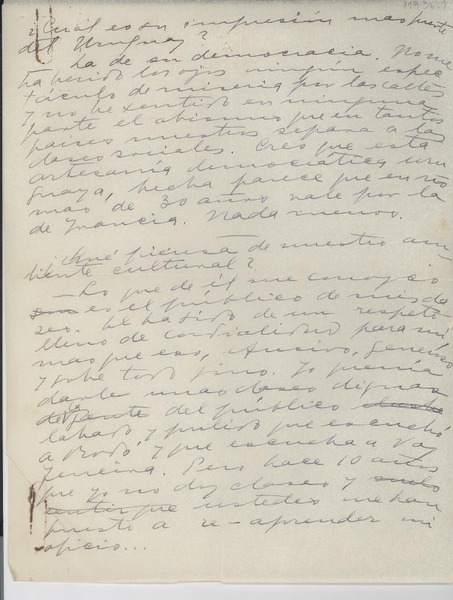 ¿Cuál es su impresión mas fuerte
del Uruguay?
La de su democracia. No me
ha herido los ojos ningún espec
táculo de miseria por las calles
y no he sentido en ninguna
parte el abismo que en tantos
países nuestros separa a las
clases sociales. Creo que esta
artesanía democrática uru
guaya, hecha parece que en no
mas de 30 años vale por la
de Francia. Nada menos.
¿Qué piensa de nuestro am-
biente cultural?
—Lo que de él me conozco
es el público de mis cla
ses. Él ha sido de un respeto
lleno de cordialidad para mí
mas que eso, efusivo, generoso
y sobre todo fino. Yo quería
darle unas clases dignas
del público
labado y pulido que escuchó
a Rodó y que escucha a Va
z Ferreira. Pero hace 10 años
que yo no doy clases y
que ustedes me han
puesto a re-aprender mi
oficio...